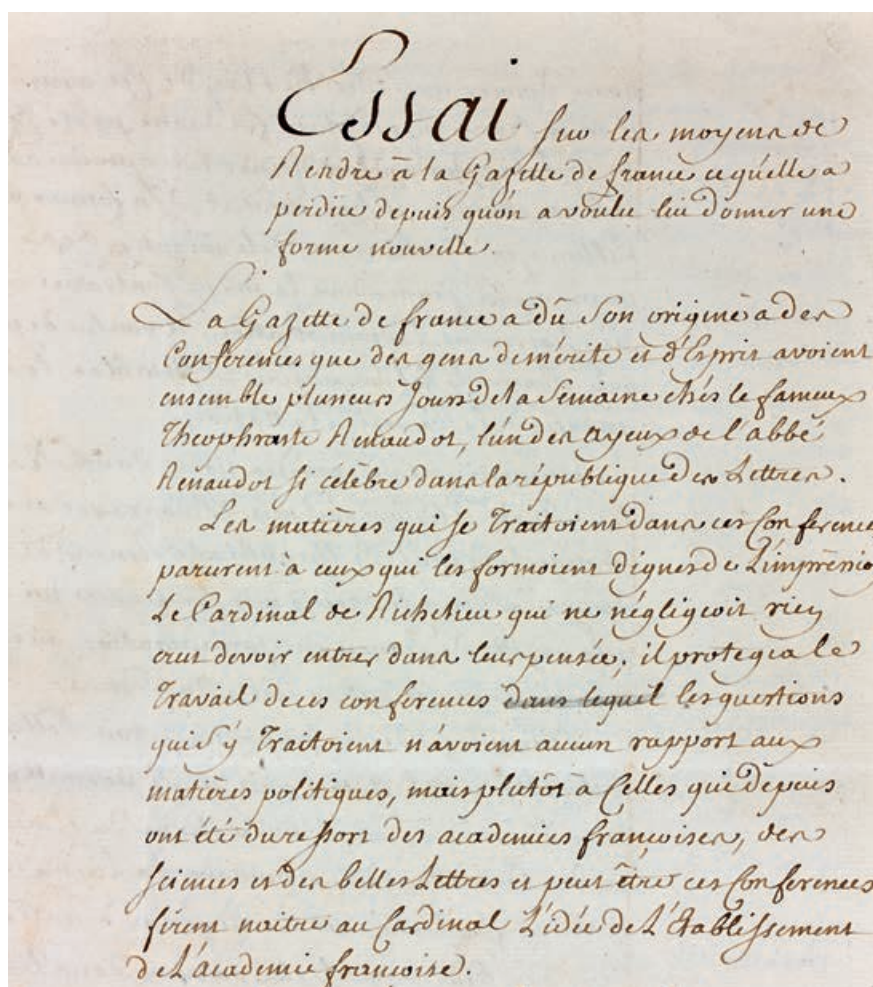 Essai sur les moyens de
Rendre à la Gazette de france ce qu'elle a
perdue depuis qu'on a voulu lui donner une
forme nouvelle.
La Gazette de france a dû son origine a des
Conférences que des gens de mérite et d'Esprit avoient
ensemble plusieurs Jours de la Semaine chés le fameux
Theophraste Renaudot, l'un des ayeux de l'abbé
Renaudot si célèbre dans la république des Lettres.
Les matières qui se Traitoient dans ces Conferences
parurent à ceux qui les formoient dignes de L'impression
Le Cardinal de Richelieu qui ne négligeoit rien
crut devoir entrer dans leur pensée; il protegea le
Travail de ces conferences dans lequel les questions
qui s'y Traitoient n'avoient aucun rapport aux
matières politiques, mais plutôt à Celles qui depuis
ont été du ressort des academies françoises, des
sciences et des belles Lettres et peut être ces Conferences
firent naitre au Cardinal L'idée de L'Etablissement
de L'academie françoise.